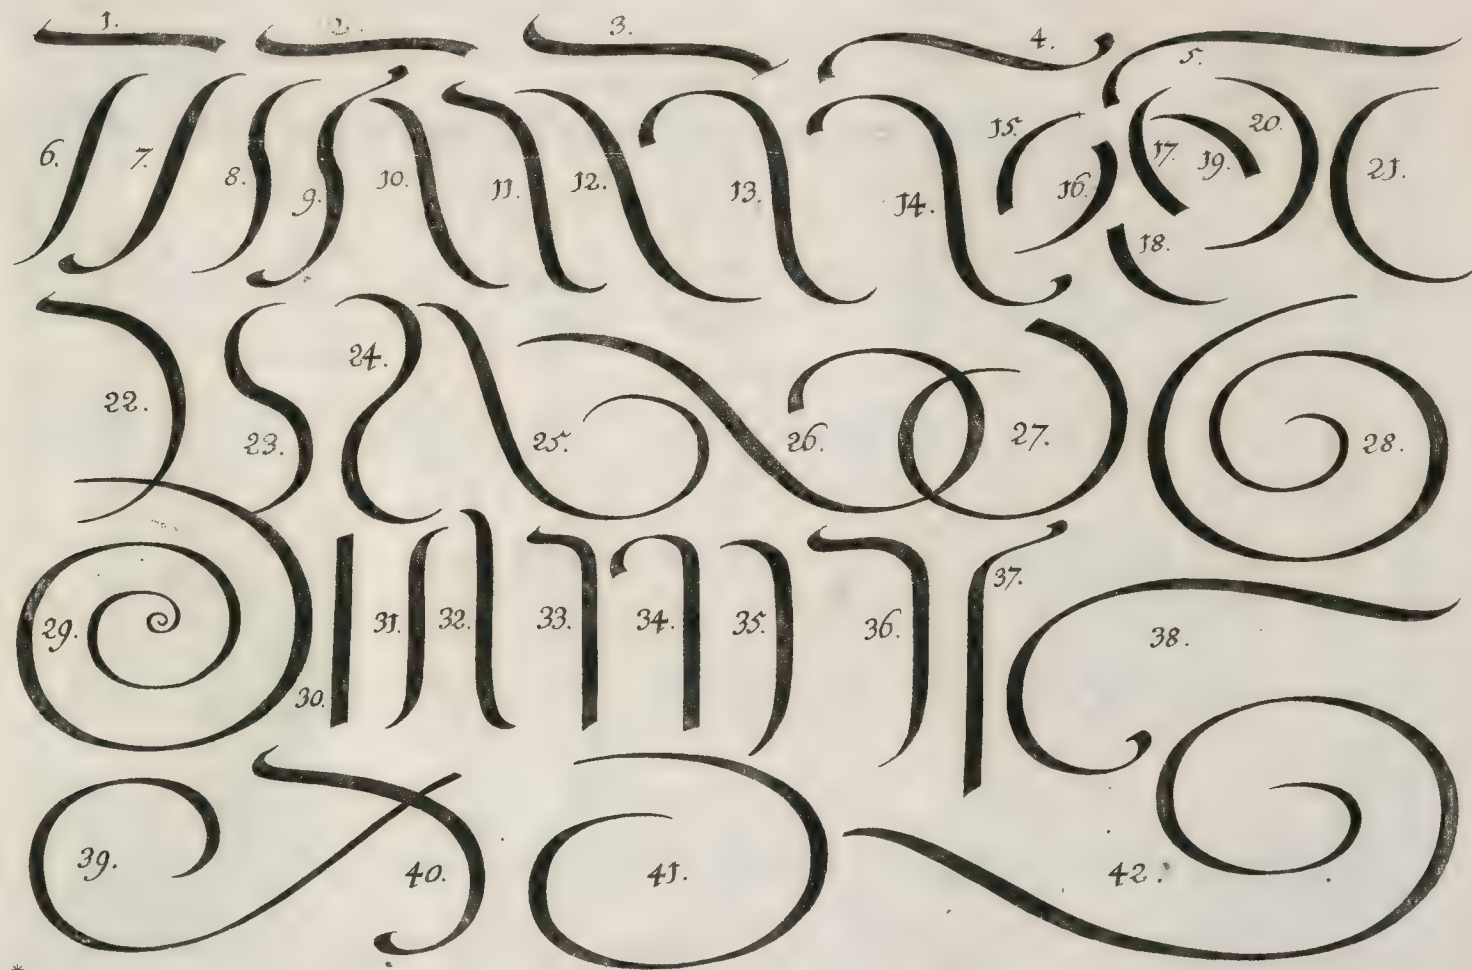 1. 2. 3. 4. 5.
6. 7. 8. 9. 10. 11. 12. 13. 14. 15. 16. 17. 18. 19. 20. 21.
22. 23. 24. 25. 26. 27. 28.
29. 30. 31. 32. 33. 34. 35. 36. 37. 38.
39. 40. 41. 42.
*